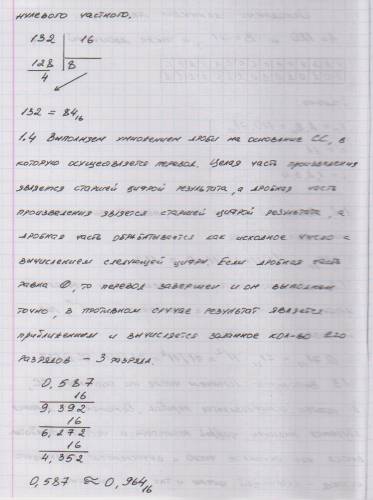 нулевого частного.
132 16
128 8
4
132 = 84₁₆
1.4 Выполняем умножением дроби на основание СС, в
которую осуществляется перевод. Целая часть произведения
является старшей цифрой результата, а дробная часть
произведения является старшей цифрой результата, а
дробная часть обрабатывается как исходное число с
вычислением следующей цифры. Если дробная часть
равна 0, то перевод завершен и он выполнен
точно, в противном случае результат является
приближением и вычисляется заданное кол-во его
разрядов – 3 разряда.
0,587
16
9,392
16
6,272
16
4,352
0,587 ≈ 0,964₁₆